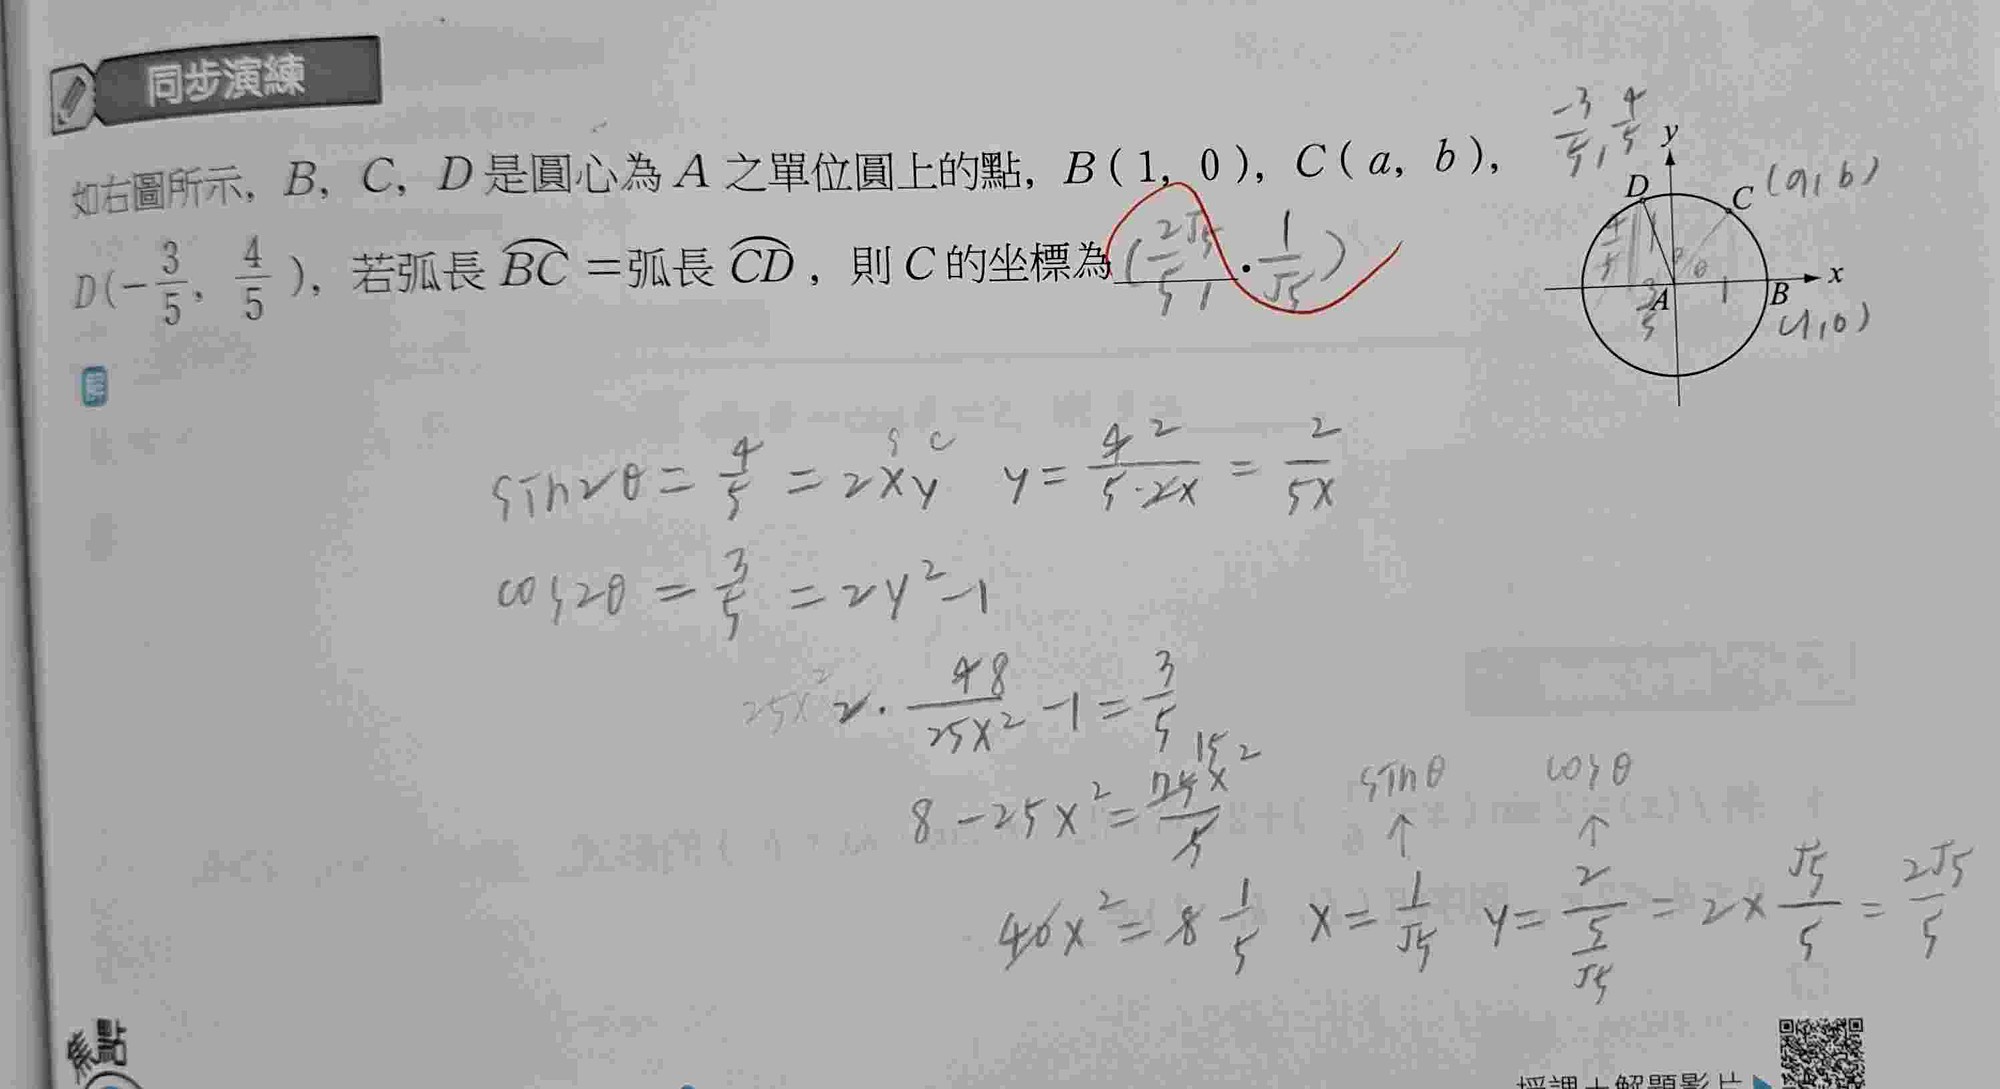 同步演練
如右圖所示, B, C, D 是圓心為 A 之單位圓上的點, B(1, 0), C(a, b),
D(-3/5, 4/5), 若弧長 BC = 弧長 CD, 則 C 的坐標為 (2√5/5 , 1/√5)
-3/5, 4/5
y
D
C (a, b)
4/5
1
θ
θ
x
A
1
B
3/5
(1, 0)
解
s c
sin2θ = 4/5 = 2xy y = 4 2/5·2x = 2/5x
cos2θ = 3/5 = 2y² -1
25x² 2· 4 8/25x² -1 = 3/5
8 - 25x² = 75 15x²/5
sinθ cosθ
↑ ↑
40x² = 8 1/5 x = 1/√5 y = 2/(5/√5) = 2 × √5/5 = 2√5/5
焦點
授課+解題影片